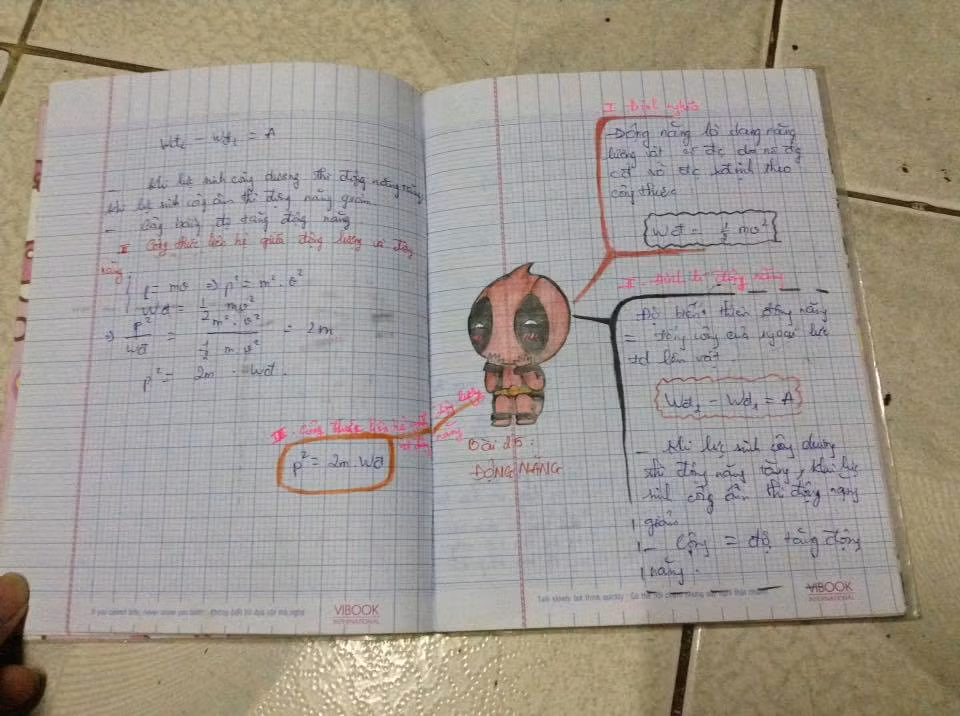 Wđ₂ - Wđ₁ = A
- Khi lực sinh công dương thì động năng tăng,
khi lực sinh công âm thì động năng giảm.
- Công bằng độ tăng động năng
III Công thức liên hệ giữa động lượng và động
năng
p = mv ⇒ p² = m² . v²
Wđ = 1/2 mv²
⇒ p²/Wđ = m² . v² / 1/2 m v² = 2m
p² = 2m . Wđ.
III. Công thức liên hệ động lượng
và động năng
p² = 2m . Wđ
If you cannot bite, never show you teeth
VIBOOK
INTERNATIONAL
I Định nghĩa
Động năng là dạng năng
lượng vật có đc do nó đg
cđ và đc xđịnh theo
công thức
Wđ = 1/2 mv²
II. Định lí động năng
Độ biến thiên động năng
= tổng công của ngoại lực
tđ lên vật
Wđ₂ - Wđ₁ = A
- Khi lực sinh công dương
thì động năng tăng, khi lực
sinh công âm thì động năng
giảm
- Công = độ tăng động
năng.
Bài 25:
ĐỘNG NĂNG
Talk slowly but think quickly
VIBOOK
INTERNATIONAL